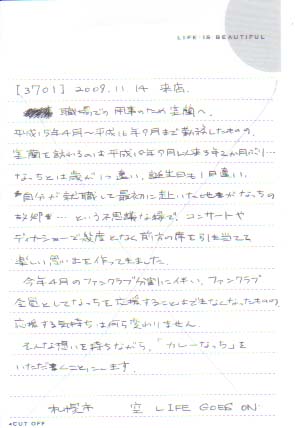 LIFE IS BEAUTIFUL
[3701] 2009.11.14 来店.
職場での用事のため室蘭へ.
平成15年4月〜平成16年9月まで勤務したものの、
室蘭を訪れるのは平成18年9月以来3年2か月ぶり…
なっちとは歳が1つ違い、誕生日も1日違い.
自分が就職して最初に赴いた地がなっちの
故郷… という不思議な縁で、コンサートや
ディナーショーで幾度となく前方の席を引き当てて
楽しい思い出を作ってきました.
今年4月のファンクラブ分割に伴い、ファンクラブ
会員としてなっちを応援することはできなくなったものの
応援する気持ちは何ら変わりません.
そんな想いを持ちながら、「カレーなっち」を
いただくことにします.
札幌市 空 LIFE GOES ON
CUT OFF